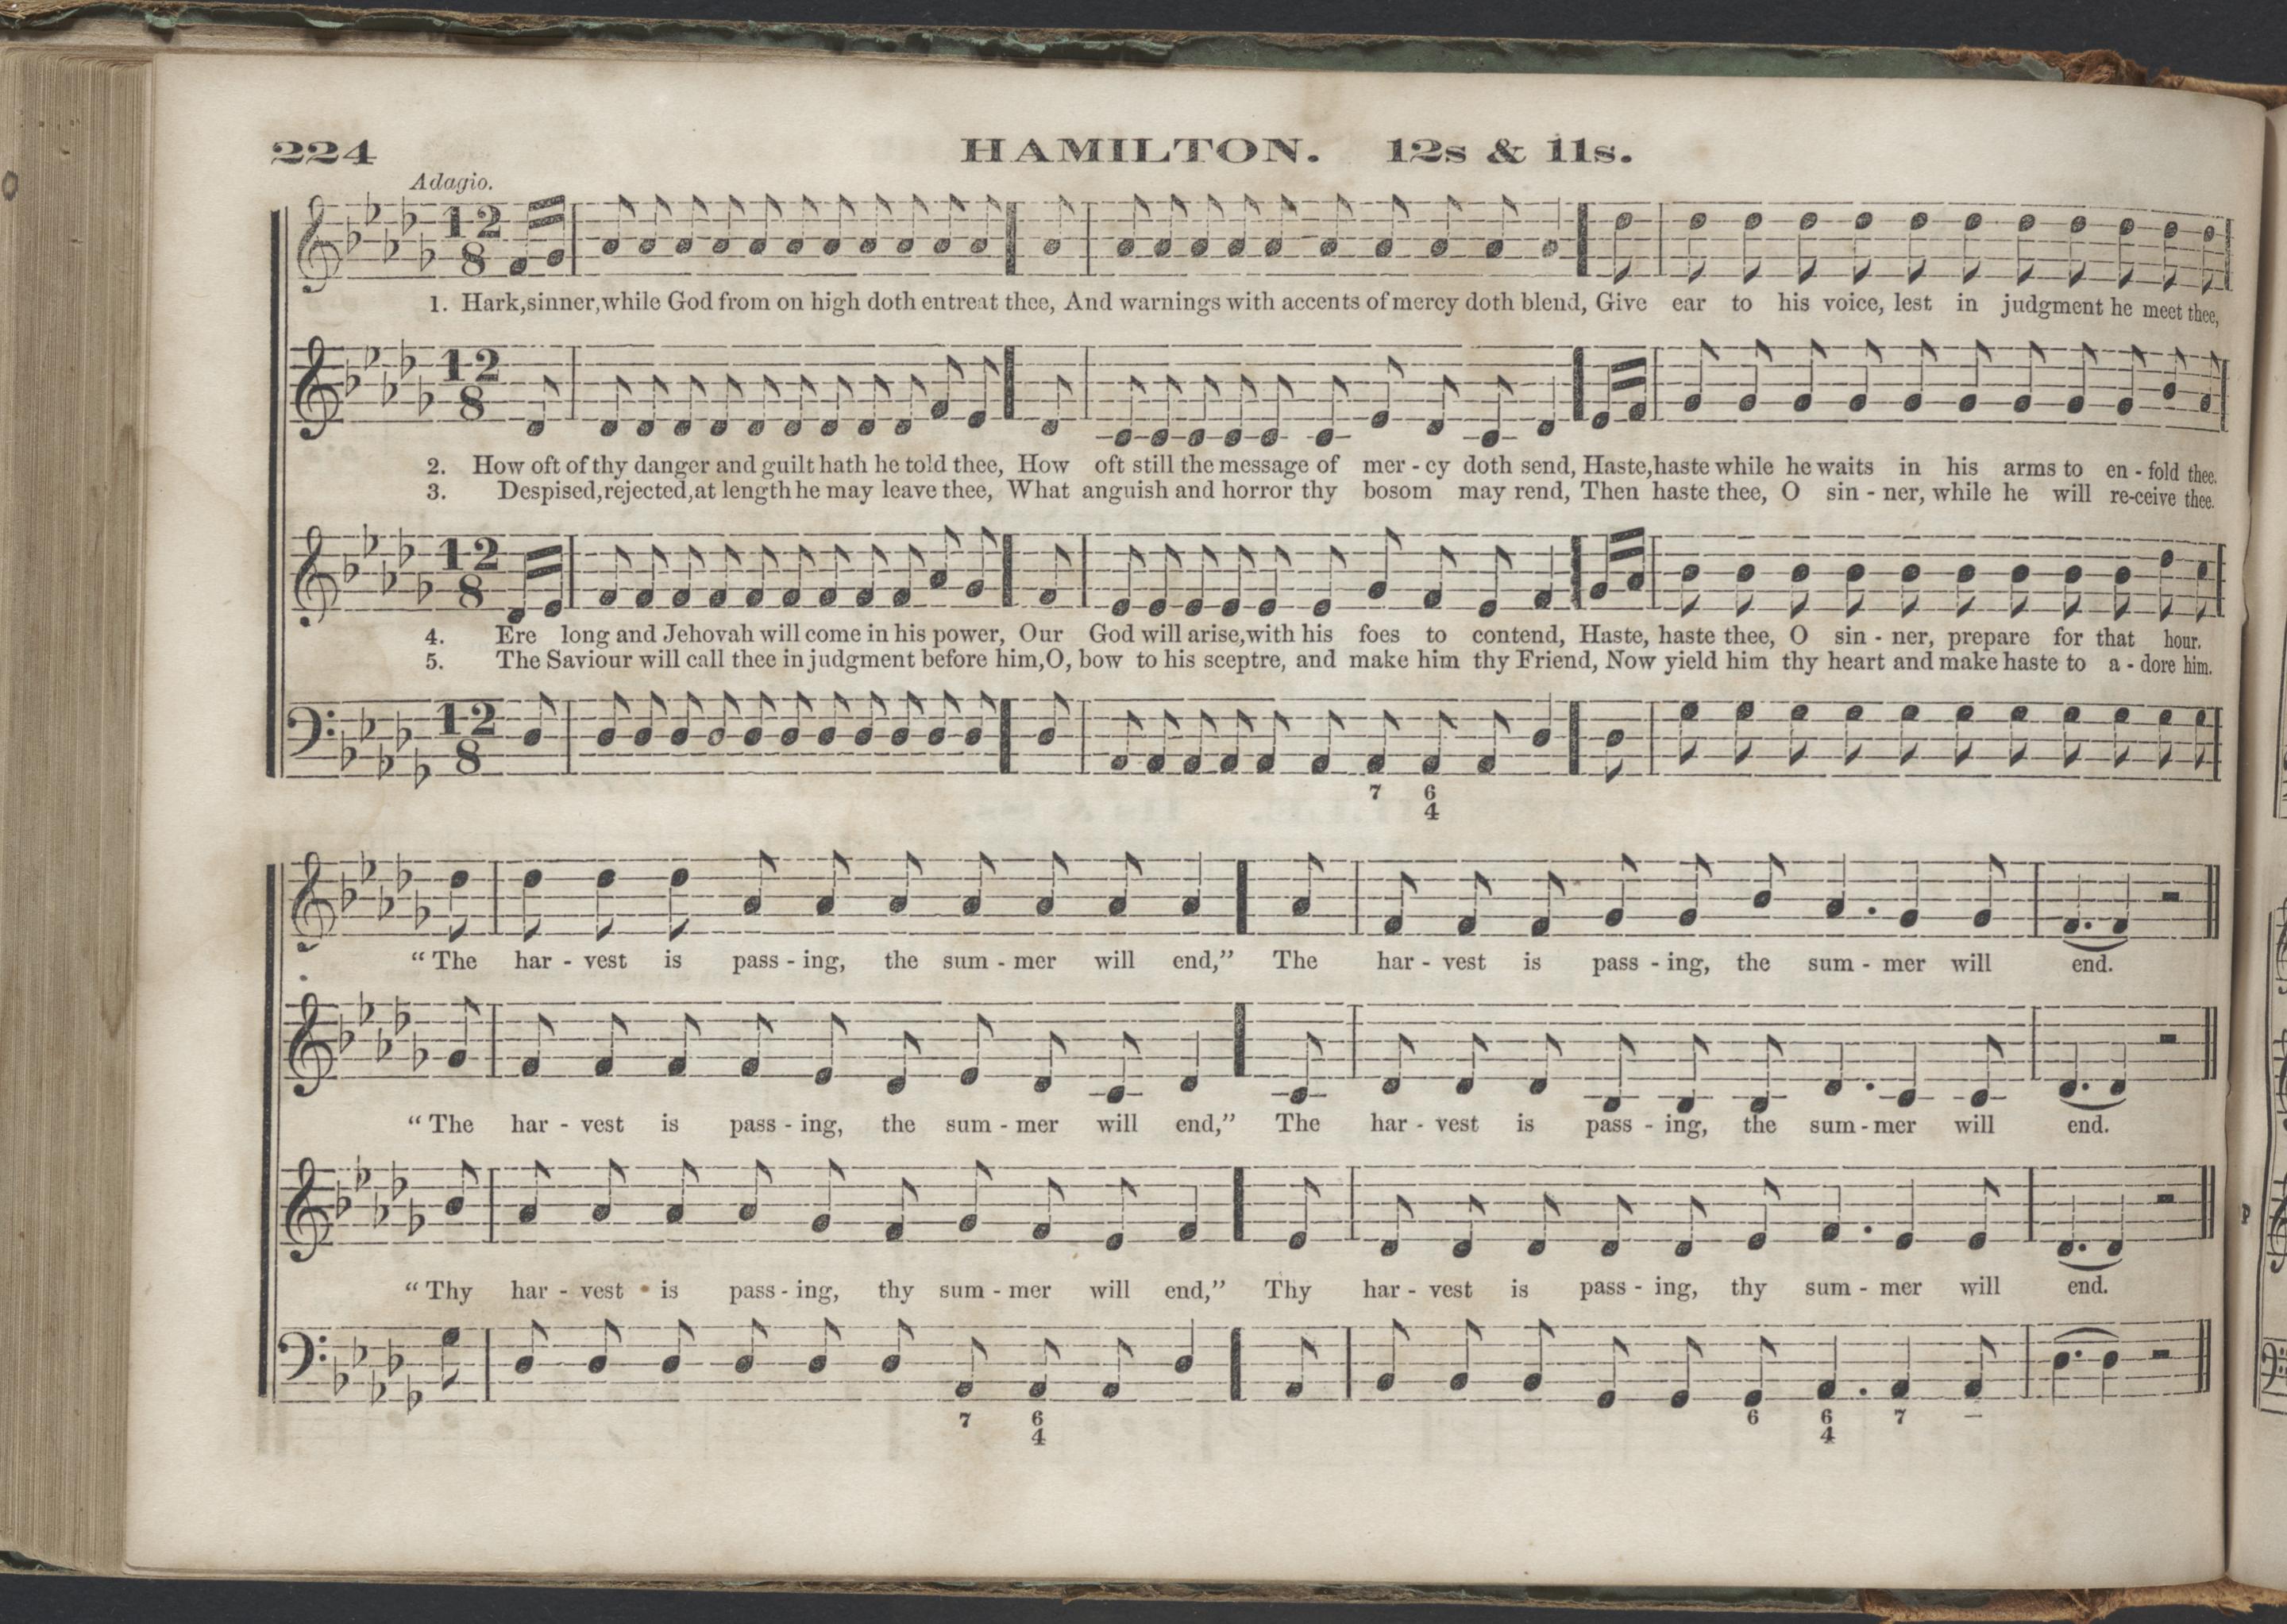 224 HAMILTON. 12s & 11s.
Adagio.
12
8
1. Hark, sinner, while God from on high doth entreat thee, And warnings with accents of mercy doth blend, Give ear to his voice, lest in judgment he meet thee,
12
8
2. How oft of thy danger and guilt hath he told thee, How oft still the message of mer - cy doth send, Haste, haste while he waits in his arms to en - fold thee.
3. Despised, rejected, at length he may leave thee, What anguish and horror thy bosom may rend, Then haste thee, O sin - ner, while he will re-ceive thee.
12
8
4. Ere long and Jehovah will come in his power, Our God will arise, with his foes to contend, Haste, haste thee, O sin - ner, prepare for that hour.
5. The Saviour will call thee in judgment before him, O, bow to his sceptre, and make him thy Friend, Now yield him thy heart and make haste to a - dore him.
12
8
7 6
4
“The har - vest is pass - ing, the sum - mer will end,” The har - vest is pass - ing, the sum - mer will end.
“The har - vest is pass - ing, the sum - mer will end,” The har - vest is pass - ing, the sum - mer will end.
“Thy har - vest is pass - ing, thy sum - mer will end,” Thy har - vest is pass - ing, thy sum - mer will end.
7 6 6 6 7 –
4 4